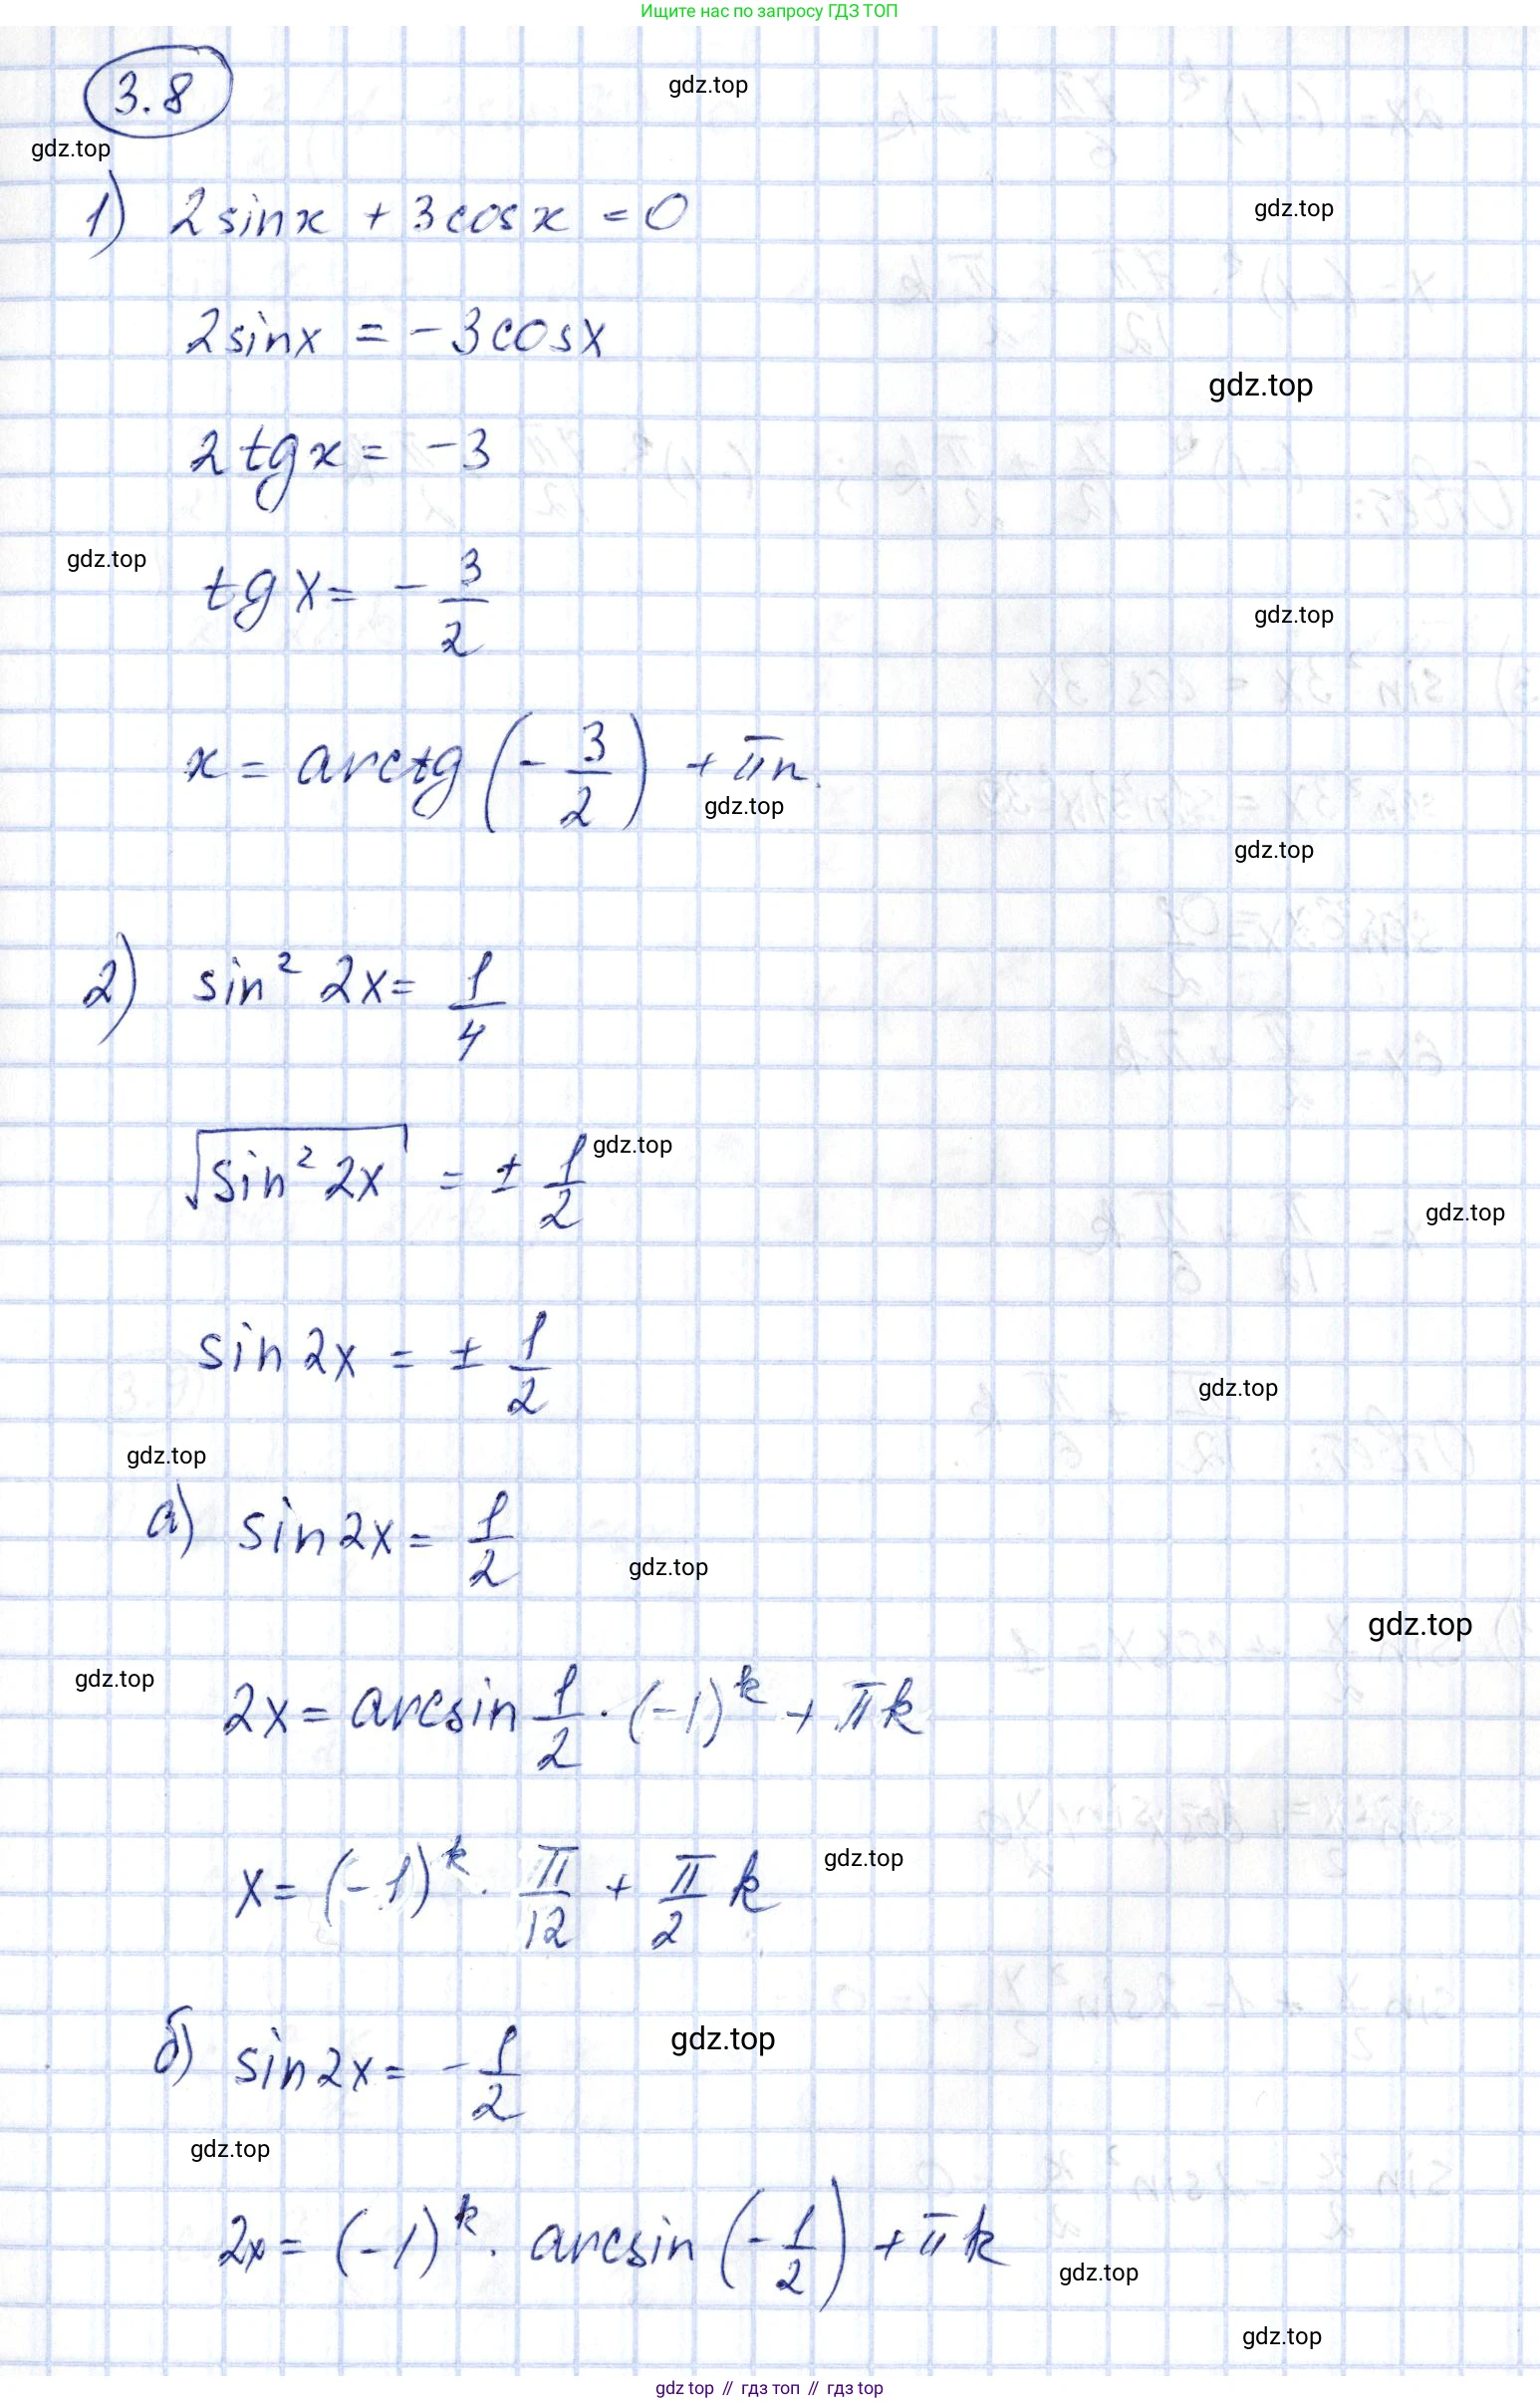 Ищите нас по запросу ГДЗ ТОП
3.8
gdz.top
gdz.top
1) 2 sin x + 3 cos x = 0
gdz.top
2 sin x = -3 cos x
gdz.top
2 tg x = -3
gdz.top
tg x = - 3/2
gdz.top
x = arctg (- 3/2) + πn.
gdz.top
gdz.top
2) sin² 2x = 1/4
√sin² 2x = ± 1/2
gdz.top
gdz.top
sin 2x = ± 1/2
gdz.top
gdz.top
а) sin 2x = 1/2
gdz.top
gdz.top
gdz.top
2x = arcsin 1/2 · (-1)^k + πk
x = (-1)^k · π/12 + π/2 k
gdz.top
б) sin 2x = - 1/2
gdz.top
gdz.top
2x = (-1)^k · arcsin (- 1/2) + πk
gdz.top
gdz.top
gdz top // гдз топ // гдз top